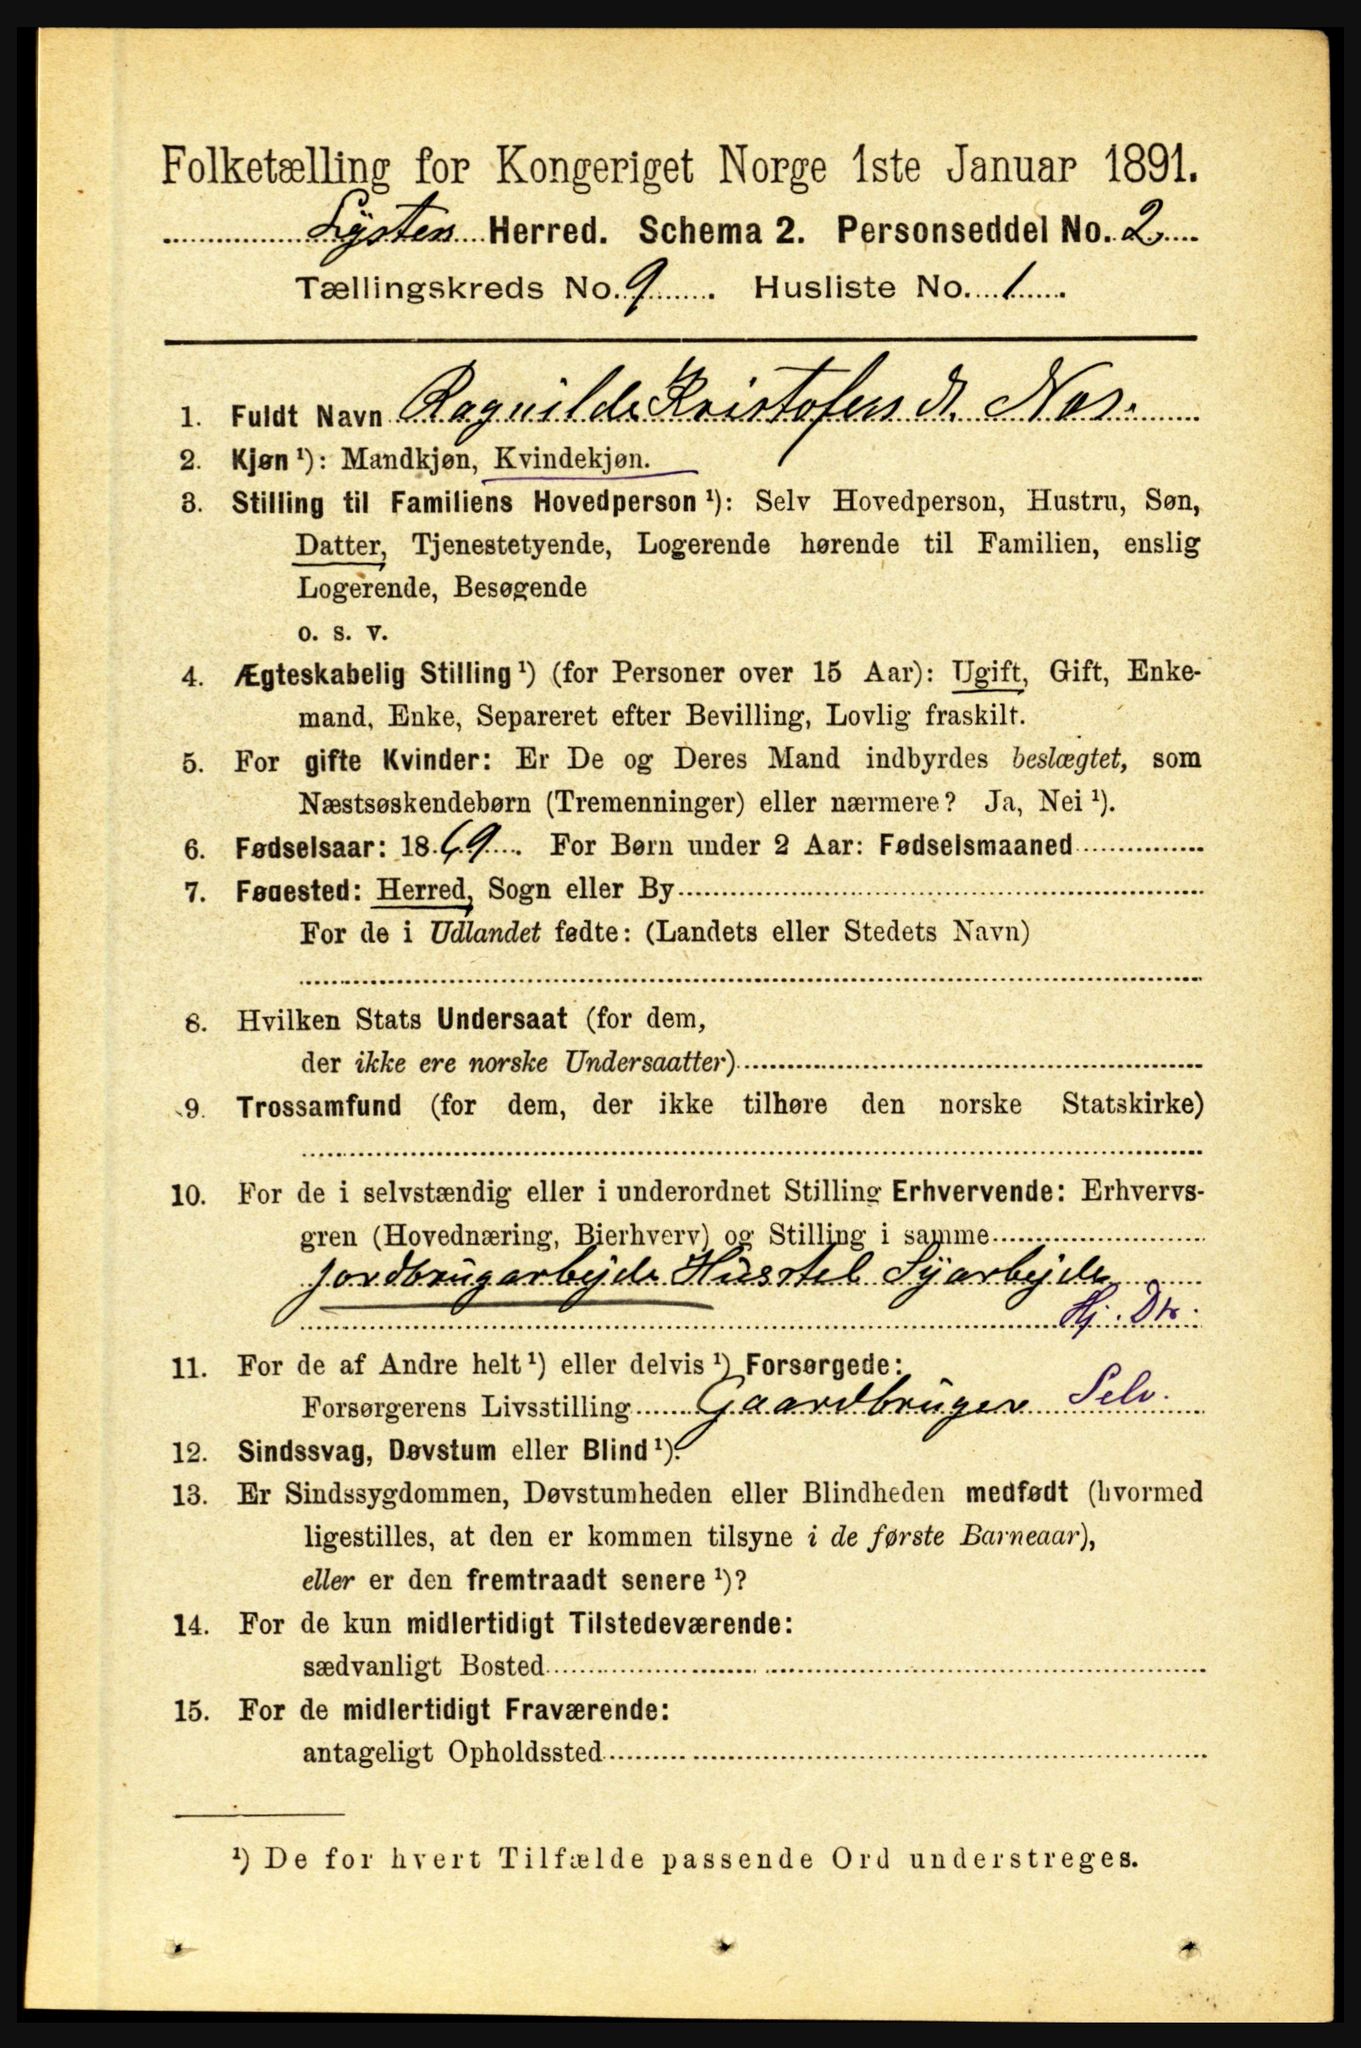 Folketælling for Kongeriget Norge 1ste Januar 1891.
Lyster Herred. Schema 2. Personseddel No. 2
Tællingskreds No. 9. Husliste No. 1.
1. Fuldt Navn Ragnilde Kristofers d. Nos.
2. Kjøn ¹): Mandkjøn, Kvindekjøn.
3. Stilling til Familiens Hovedperson ¹): Selv Hovedperson, Hustru, Søn,
Datter, Tjenestetyende, Logerende hørende til Familien, enslig
Logerende, Besøgende
o. s. v.
4. Ægteskabelig Stilling ¹) (for Personer over 15 Aar): Ugift, Gift, Enke-
mand, Enke, Separeret efter Bevilling, Lovlig fraskilt.
5. For gifte Kvinder: Er De og Deres Mand indbyrdes beslægtet, som
Næstsøskendebørn (Tremenninger) eller nærmere? Ja, Nei ¹).
6. Fødselsaar: 1869. For Børn under 2 Aar: Fødselsmaaned
7. Fødested: Herred, Sogn eller By
For de i Udlandet fødte: (Landets eller Stedets Navn)
8. Hvilken Stats Undersaat (for dem,
der ikke ere norske Undersaatter)
9. Trossamfund (for dem, der ikke tilhøre den norske Statskirke)
10. For de i selvstændig eller i underordnet Stilling Erhvervende: Erhvervs-
gren (Hovednæring, Bierhverv) og Stilling i samme
jordbrugarbejde Husstel Syarbejde
Hj. Dtr.
11. For de af Andre helt ¹) eller delvis ¹) Forsørgede:
Forsørgerens Livsstilling Gaardbruger Selv.
12. Sindssvag, Døvstum eller Blind ¹).
13. Er Sindssygdommen, Døvstumheden eller Blindheden medfødt (hvormed
ligestilles, at den er kommen tilsyne i de første Barneaar),
eller er den fremtraadt senere ¹)?
14. For de kun midlertidigt Tilstedeværende:
sædvanligt Bosted
15. For de midlertidigt Fraværende:
antageligt Opholdssted
¹) De for hvert Tilfælde passende Ord understreges.